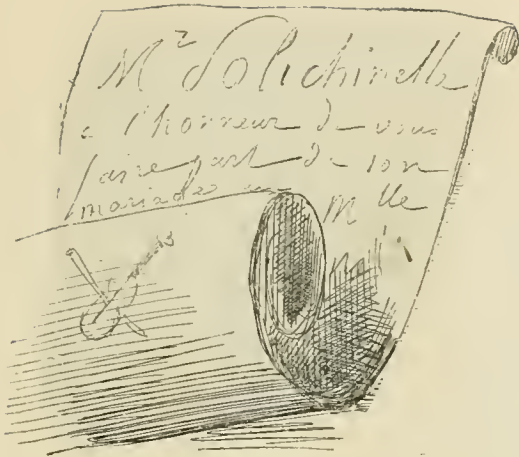 Mr Polichinelle
a l'honneur de vous
faire part de son
mariage
Mlle